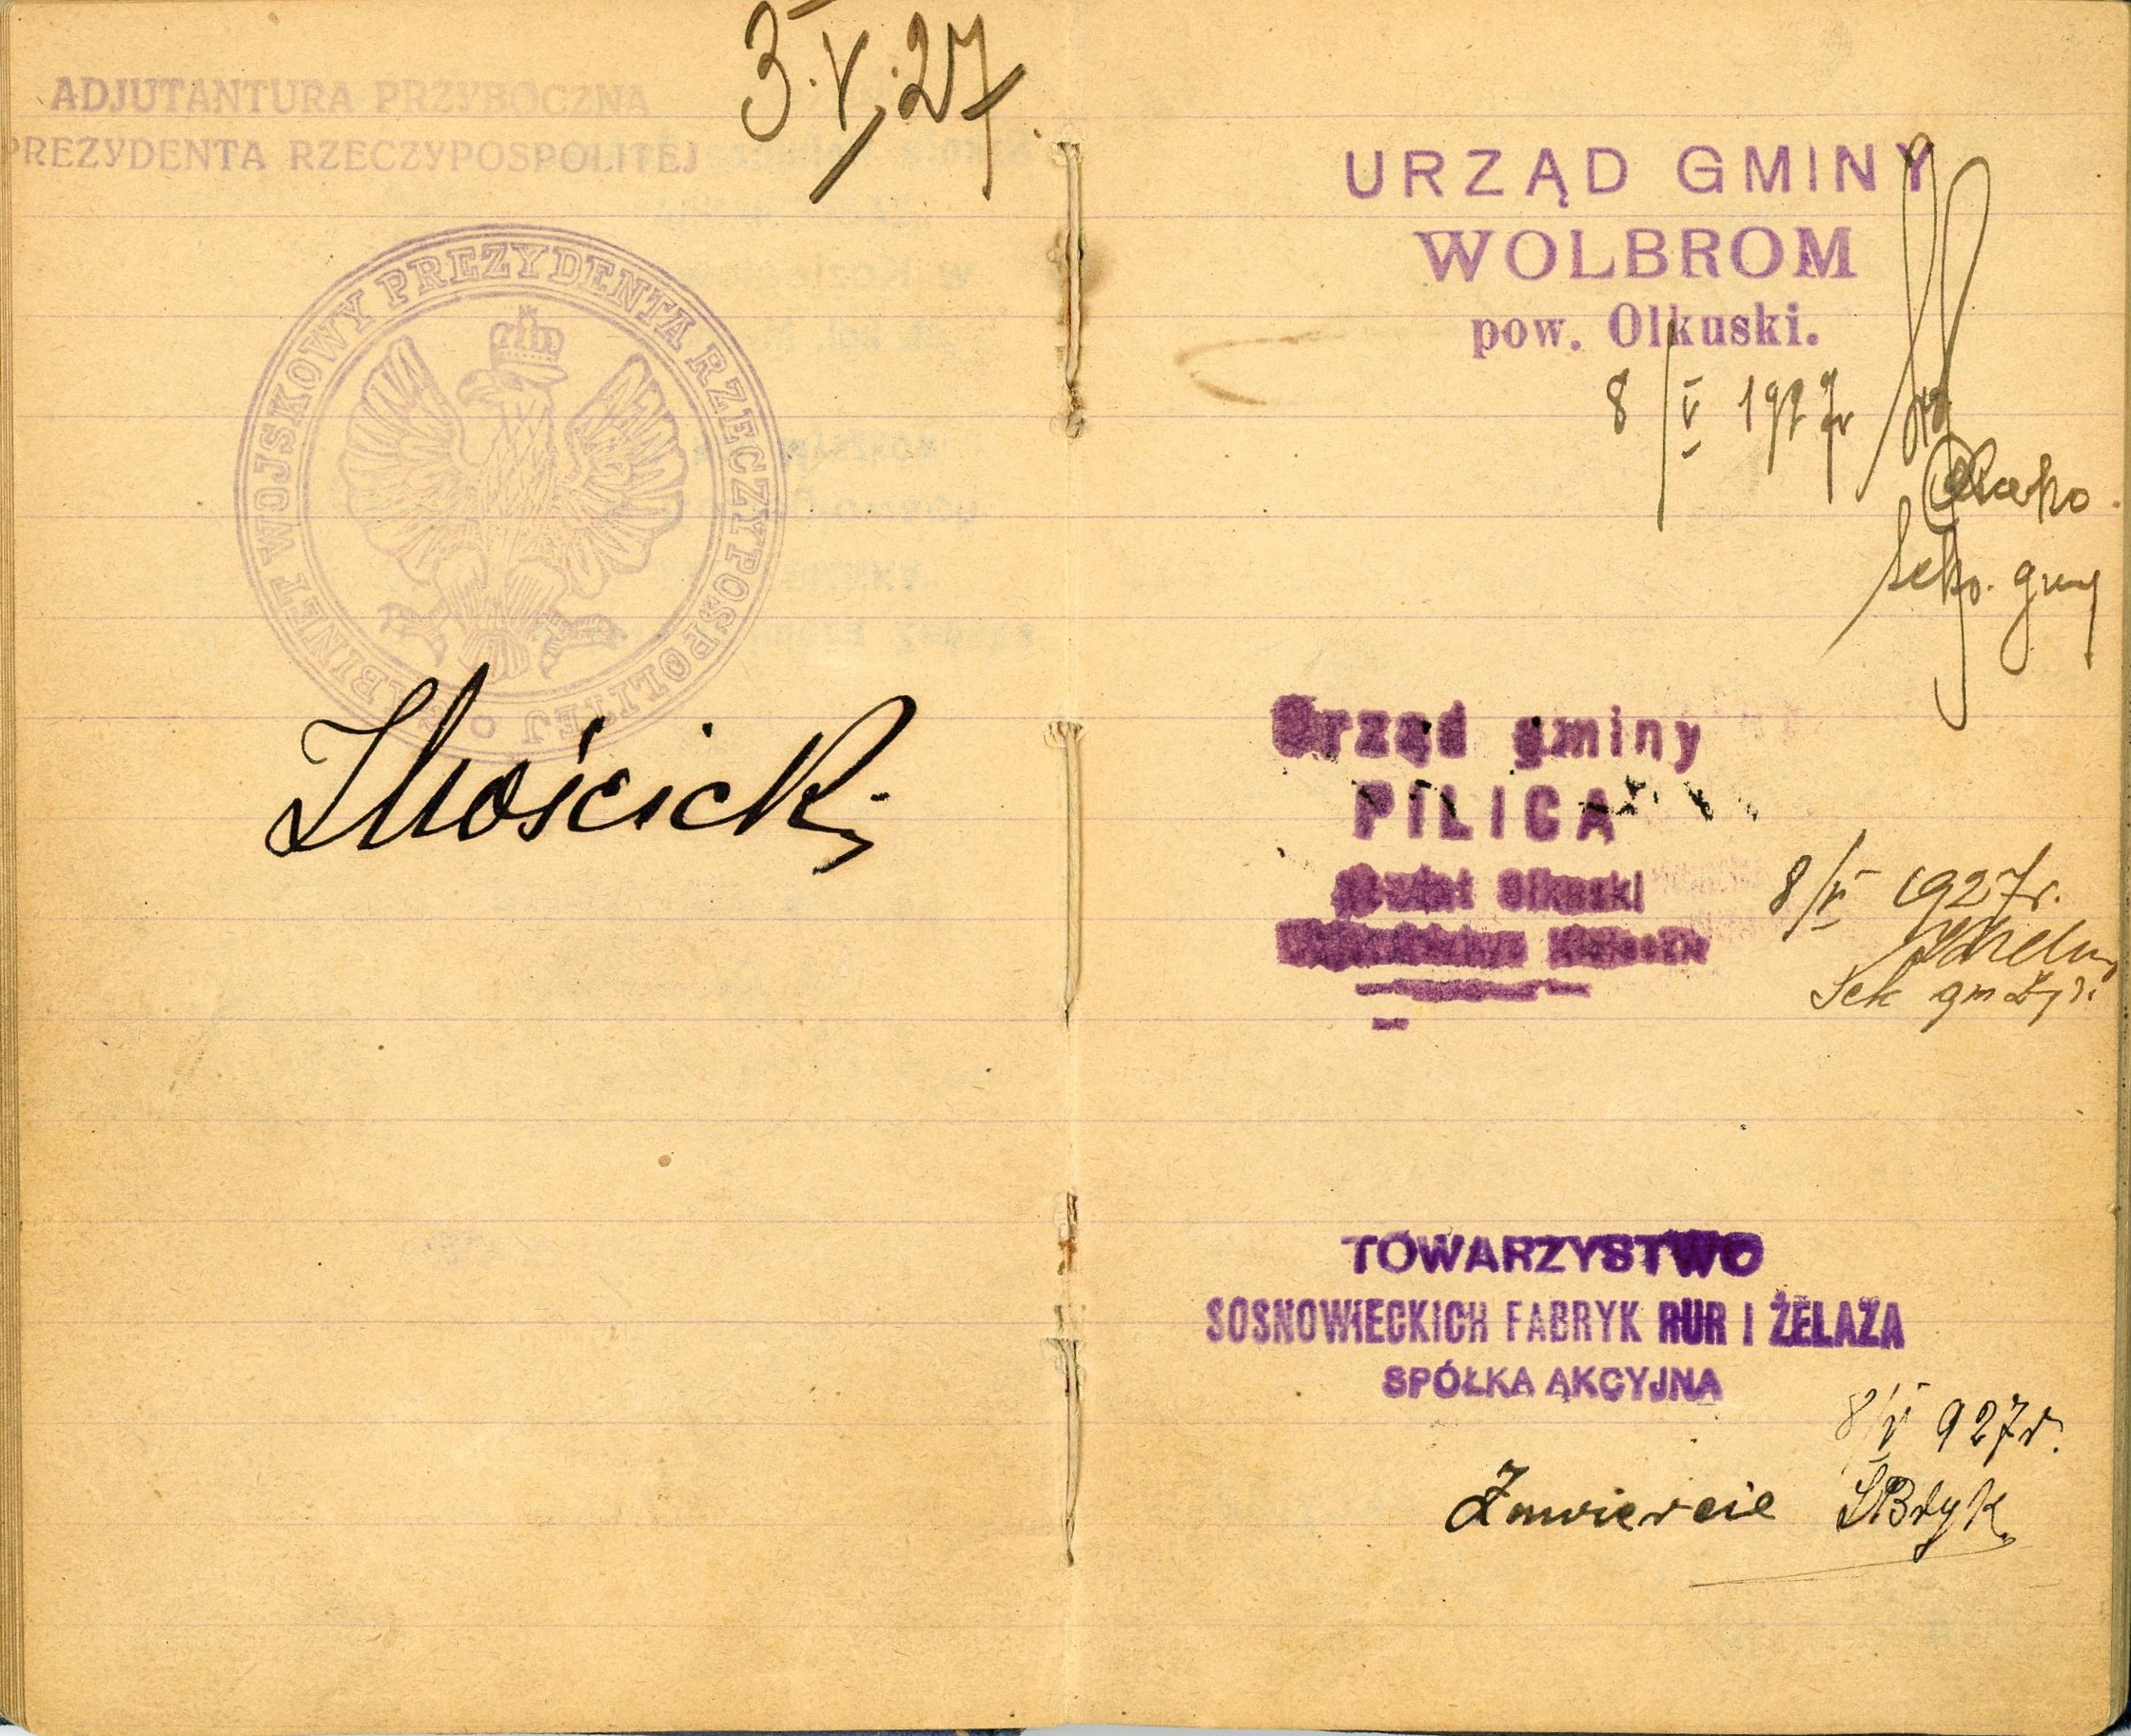 3.V.27
ADJUTANTURA PRZYBOCZNA
PREZYDENTA RZECZYPOSPOLITEJ
GABINET WOJSKOWY PREZYDENTA RZECZYPOSPOLITEJ
IMościcki
URZĄD GMINY
WOLBROM
pow. Olkuski.
8/V 1927r
Sekr. gminy
Urząd gminy
PILICA
Powiat Olkuski
8/V 1927r.
Sek gm
TOWARZYSTWO
SOSNOWIECKICH FABRYK RUR I ŻELAZA
SPÓŁKA AKCYJNA
8/V 927r.
Zawiercie